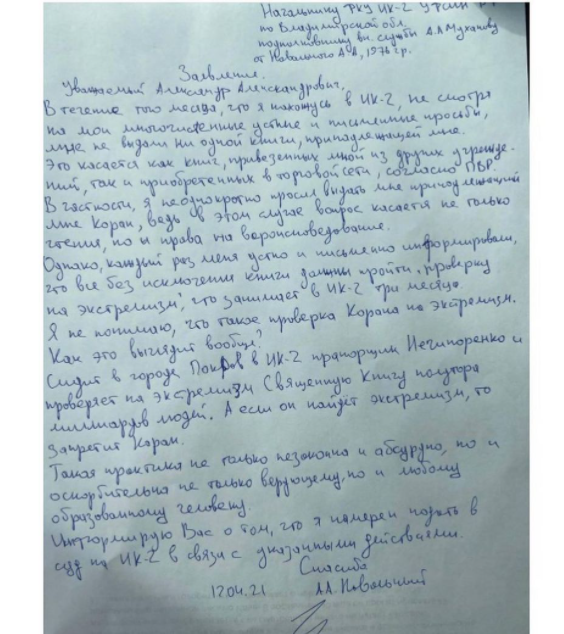 Начальнику ФКУ ИК-2 УФСИН Р
по Владимирской обл.
подполковнику вн. службы А.А Муханову
от Навального А.А, 1976 г.р.
Заявление.
Уважаемый Александр Александрович.
В течение того месяца, что я нахожусь в ИК-2, не смотря
на мои многочисленные устные и письменные просьбы,
мне не выдали ни одной книги, принадлежащей мне.
Это касается как книг, привезенных мной из других учрежде-
ний, так и приобретенных в торговой сети, согласно ПВР.
В частности, я неоднократно просил выдать мне принадлежащий
мне Коран, ведь в этом случае вопрос касается не только
чтения, но и права на вероисповедование.
Однако, каждый раз меня устно и письменно информировали,
что все без исключения книги должны пройти "проверку
на экстремизм", что занимает в ИК-2 три месяца.
Я не понимаю, что такое проверка Корана на экстремизм.
Как это выглядит вообще?
Сидит в городе Покров в ИК-2 прапорщик Нечипоренко и
проверяет на экстремизм Священную Книгу полутора
миллиардов людей. А если он найдёт экстремизм, то
запретит Коран.
Такая практика не только незаконна и абсурдна, но и
оскорбительна не только верующему, но и любому
образованному человеку.
Информирую Вас о том, что я намерен подать в
суд на ИК-2 в связи с указанными действиями.
Спасибо
12.04.21 А.А. Навальный